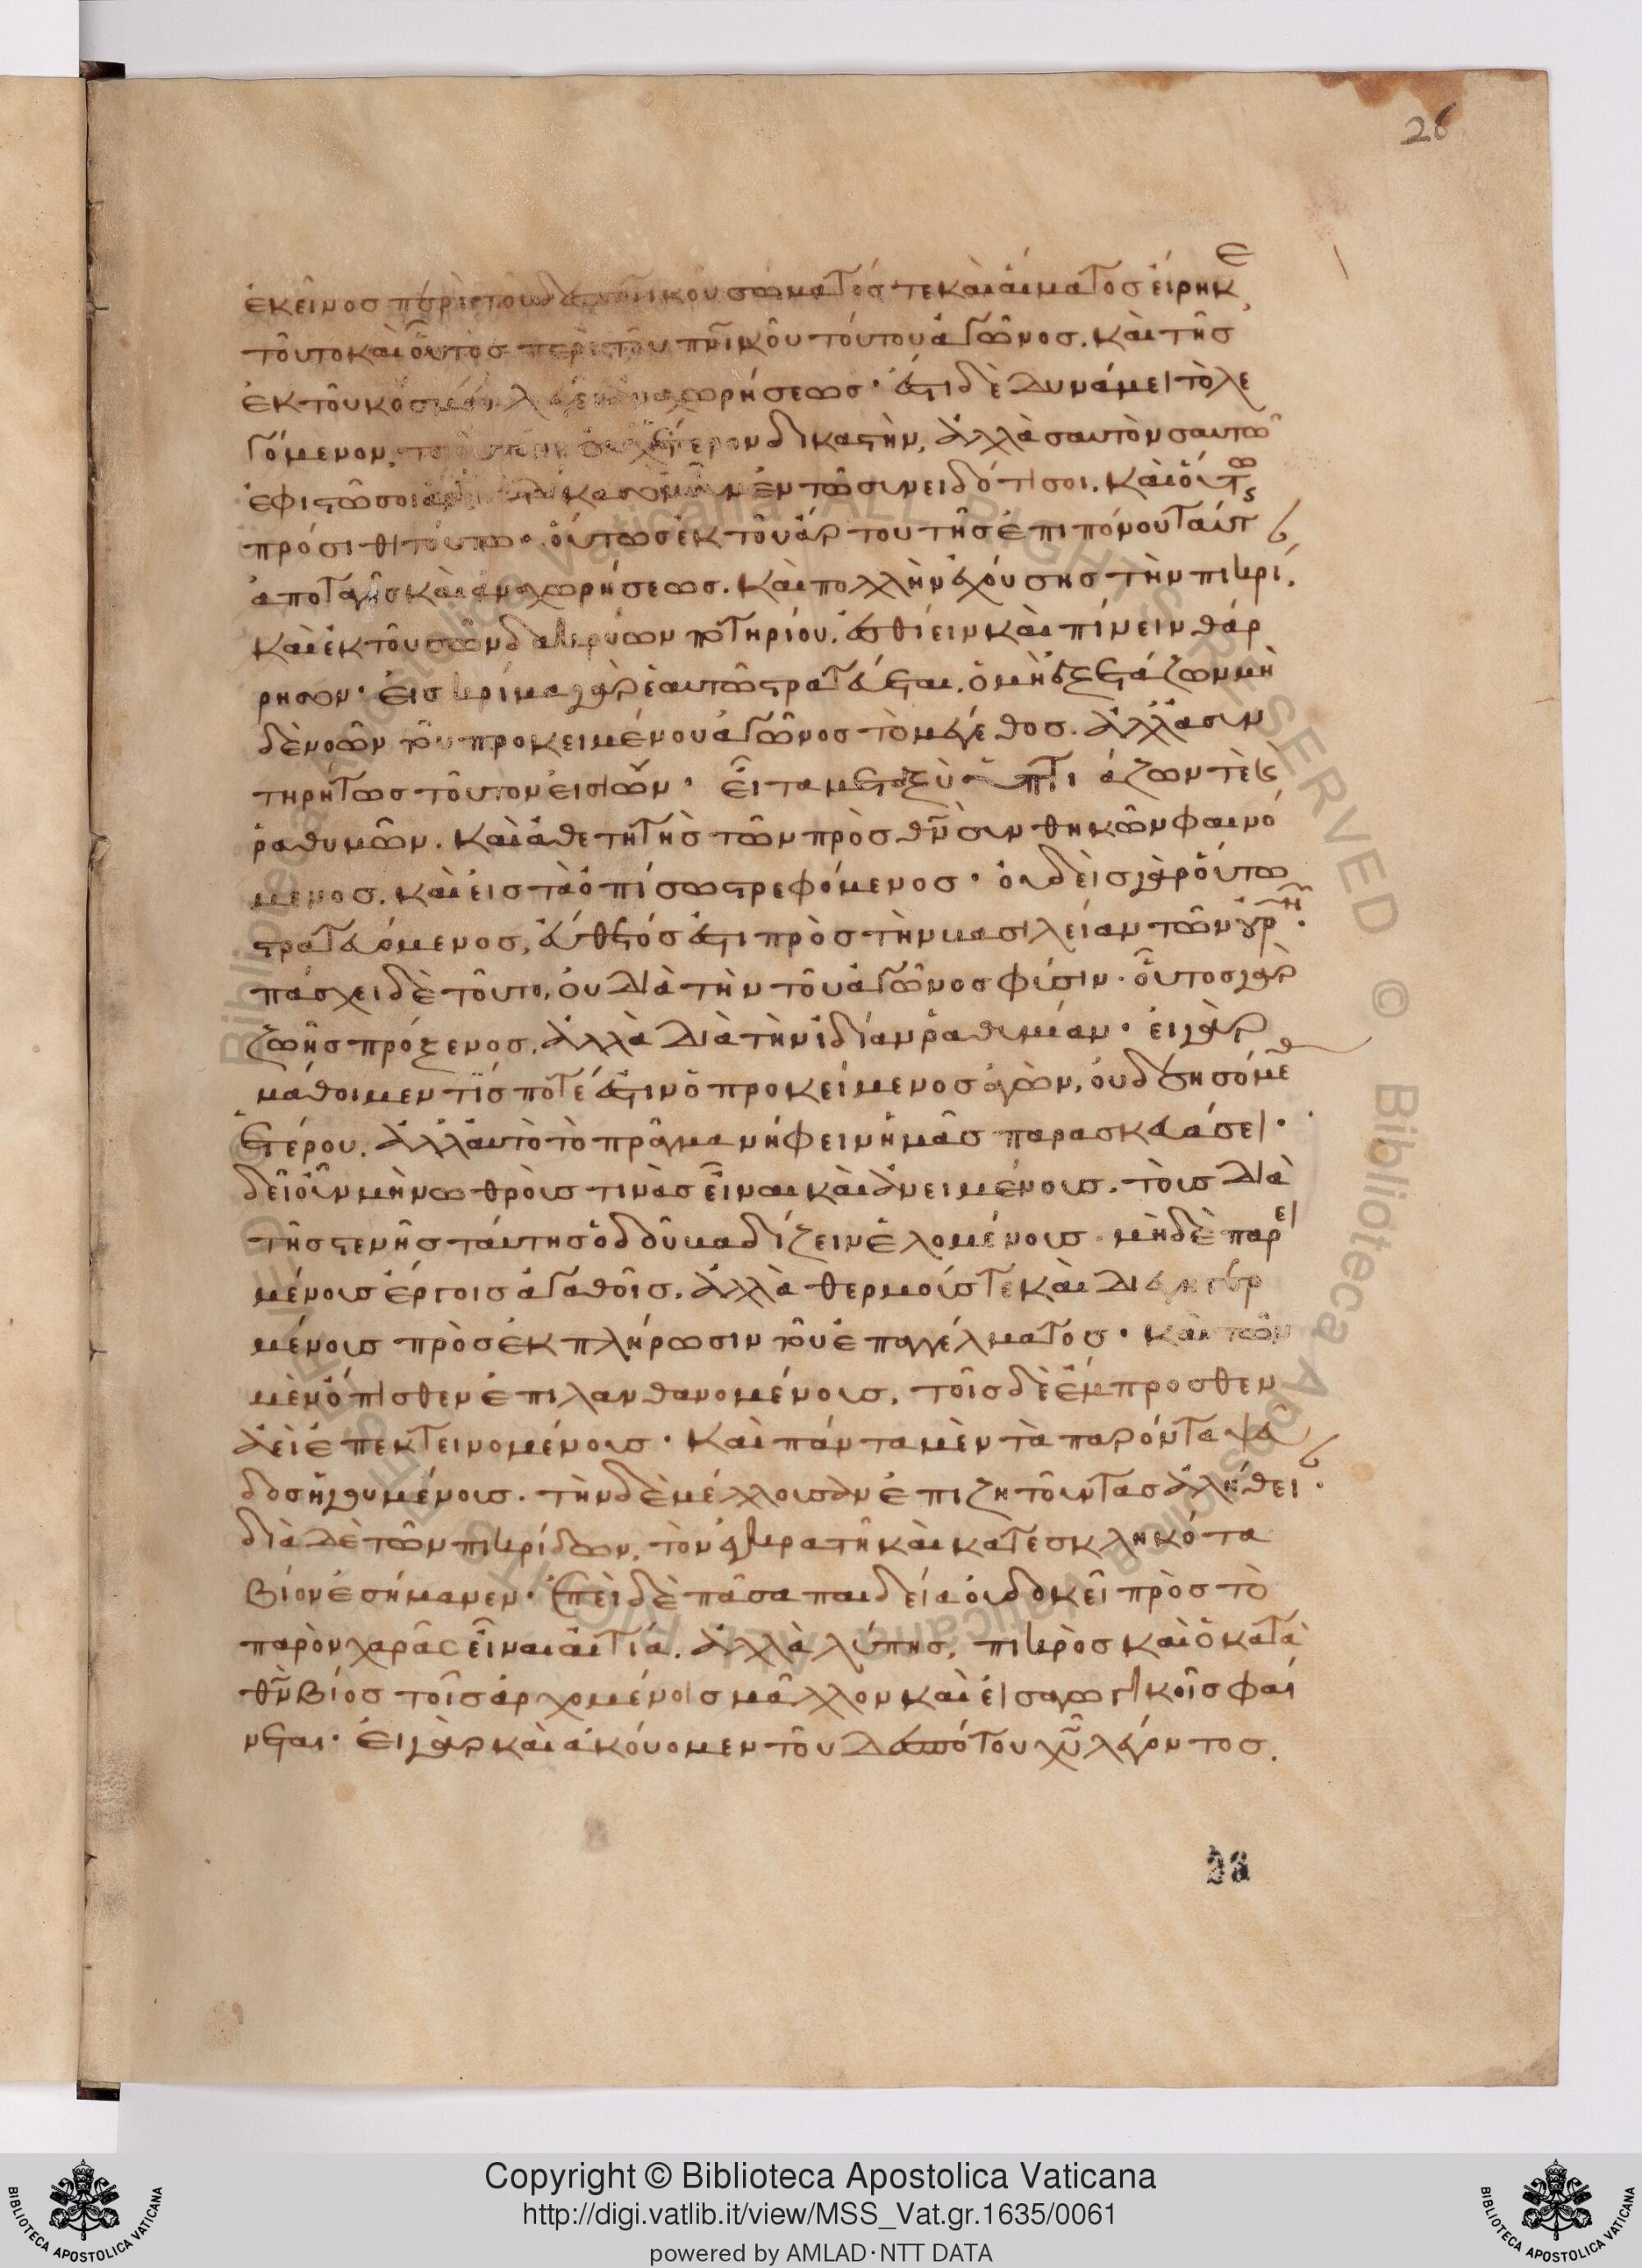 26
ἐκεῖνος περὶ τοῦ δεσποτικοῦ σώματός τε καὶ αἵματος εἴρηκε
τοῦτο καὶ οὗτος περὶ τοῦ πνικοῦ τούτου ἀγῶνος. καὶ τῆς
ἐκ τοῦ κόσμου λέγει ἀναχωρήσεως· ἔστι δὲ δυνάμει τὸ λε
γόμενον, ἕτερον δικαστὴν, ἀλλὰ σαυτὸν σαυτῶ
ἐφιστῶ σοι ἐν τῶ συνειδότι σοι. καὶ οὕτως
πρόσιθι τούτω· οὕτως ἐκ τοῦ ἄρτου τῆς ἐπιπόνου ταύτ
ἀποταγῆς καὶ ἀναχωρήσεως. καὶ πολλὴν ἐχούσης τὴν πικρί.
καὶ ἐκ τοῦ τῶν δακρύων ποτηρίου. ἐσθίειν καὶ πίνειν θάρ
ρησον· εἰς κρίμα γὰρ ἑαυτῶ στρατεύεται. ὁ μὴ ἐξετάζων μὴ
δὲ νοῶν τοῦ προκειμένου ἀγῶνος τὸ μέγεθος. ἀλλ' ἀσυν
τηρήτως τοῦτον εἰσιών· εἶτα μεταξὺ ἀζων τε
ῥαθυμῶν. καὶ ἀθετητὴς τῶν πρὸς θν συνθηκῶν φαινό
μενος. καὶ εἰς τὰ ὀπίσω στρεφόμενος· οὐδεὶς γὰρ οὕτω
στρατευόμενος, εὔθετός ἐστι πρὸς τὴν βασιλείαν τῶν
πάσχει δὲ τοῦτο, οὐ διὰ τὴν τοῦ ἀγῶνος φύσιν· οὗτος γὰρ
ζωῆς πρόξενος. ἀλλὰ διὰ τὴν ἰδίαν ῥαθυμίαν· εἰ γὰρ
μάθοιμεν τίς ποτέ ἐστιν ὁ προκείμενος ἀγών, οὐ δεησόμεθ
ἑτέρου. ἀλλ' αὐτὸ τὸ πρᾶγμα νήφειν ἡμᾶς παρασκευάσει·
δεῖ οὖν μὴ νωθροὺς τινὰς εἶναι καὶ ἀνειμένους. τοὺς διὰ
τῆς στενῆς ταύτης ὁδοῦ βαδίζειν ἑλομένους. μὴ δὲ παρει
μένους ἔργοις ἀγαθοῖς. ἀλλὰ θερμούς τε καὶ διεγηγερ
μένους πρὸς ἐκπλήρωσιν τοῦ ἐπαγγέλματος· καὶ τῶν
μὲν ὄπισθεν ἐπιλανθανομένους, τοῖς δὲ ἔμπροσθεν
ἀεὶ ἐπεκτεινομένους· καὶ πάντα μὲν τὰ παρόντα ψεῦ
δος ἡγουμένους. τὴν δὲ μέλλουσαν ἐπιζητοῦντας ἀλήθει·
διὰ δὲ τῶν πικρίδων, τὸν ἐγκρατῆ καὶ κατεσκληκότα
βίον ἐσήμανεν· ἐπεὶ δὲ πᾶσα παιδεία οὐ δοκεῖ πρὸς τὸ
παρὸν χαρᾶς εἶναι αἰτία. ἀλλὰ λύπης, πικρὸς καὶ ὁ κατὰ
θν βίος τοῖς ἀρχομένοις μᾶλλον καὶ εἰσαγωγικοῖς φαί
νεται· εἰ γὰρ καὶ ἀκούομεν τοῦ δεσπότου χυ λέγοντος.
23
Copyright © Biblioteca Apostolica Vaticana
http://digi.vatlib.it/view/MSS_Vat.gr.1635/0061
powered by AMLAD·NTT DATA
BIBLIOTECA APOSTOLICA VATICANA
BIBLIOTECA APOSTOLICA VATICANA